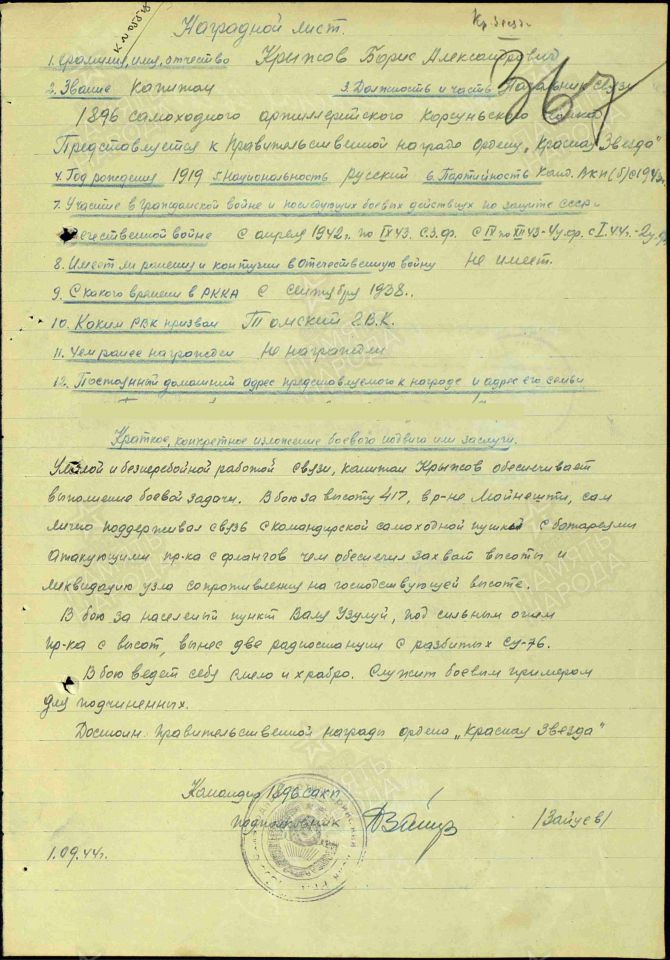 Кр Звезда
367
Наградной лист.
1. Фамилия, имя, отчество Крыжов Борис Александрович
2. Звание Капитан 3. Должность и часть Начальник связи
1896 самоходного артиллерийского Корсуньского полка
Представляется к Правительственной награде ордену „Красная Звезда"
4. Год рождения 1919 5. Национальность русский 6. Партийность Канд. ВКП(б) с 1943г.
7. Участие в гражданской войне и последующих боевых действиях по защите СССР и
отечественной войне С апреля 1942г. по IV 43. С.З.ф. С IV по XII 43 - 4у.ф. с I.44г. - 2у.ф.
8. Имеет ли ранения и контузии в Отечественную войну Не имеет.
9. С какого времени в РККА С сентября 1938.
10. Каким РВК призван Томский Г.В.К.
11. Чем ранее награжден Не награжден
12. Постоянный домашний адрес представляемого к награде и адрес его семьи
Краткое, конкретное изложение боевого подвига или заслуги.
Умелой и безперебойной работой связи, капитан Крыжов обеспечивает
выполнение боевой задачи. В бою за высоту 417, в р-не Мойнешти, сам
лично поддерживал связь с командирской самоходной пушки с батареями
атакующими пр-ка с флангов чем обеспечил захват высоты и
ликвидацию узла сопротивления на господствующей высоте.
В бою за населеный пункт Валя Узулуй, под сильным огнем
пр-ка с высот, вынес две радиостанции с разбитых СУ-76.
В бою ведет себя смело и храбро. Служит боевым примером
для подчиненных.
Достоин Правительственной награды ордена „Красная Звезда"
Командир 1896 сакп
подполковник /Зайцев/
1.09.44г.